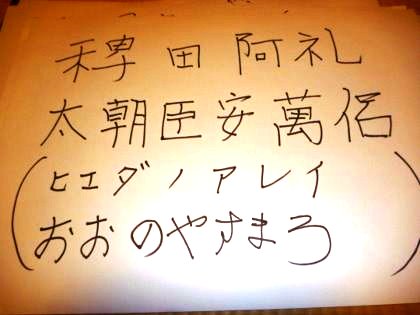 稗田阿礼
太朝臣安萬侶
(ヒエダノアレイ
おおのやすまろ)